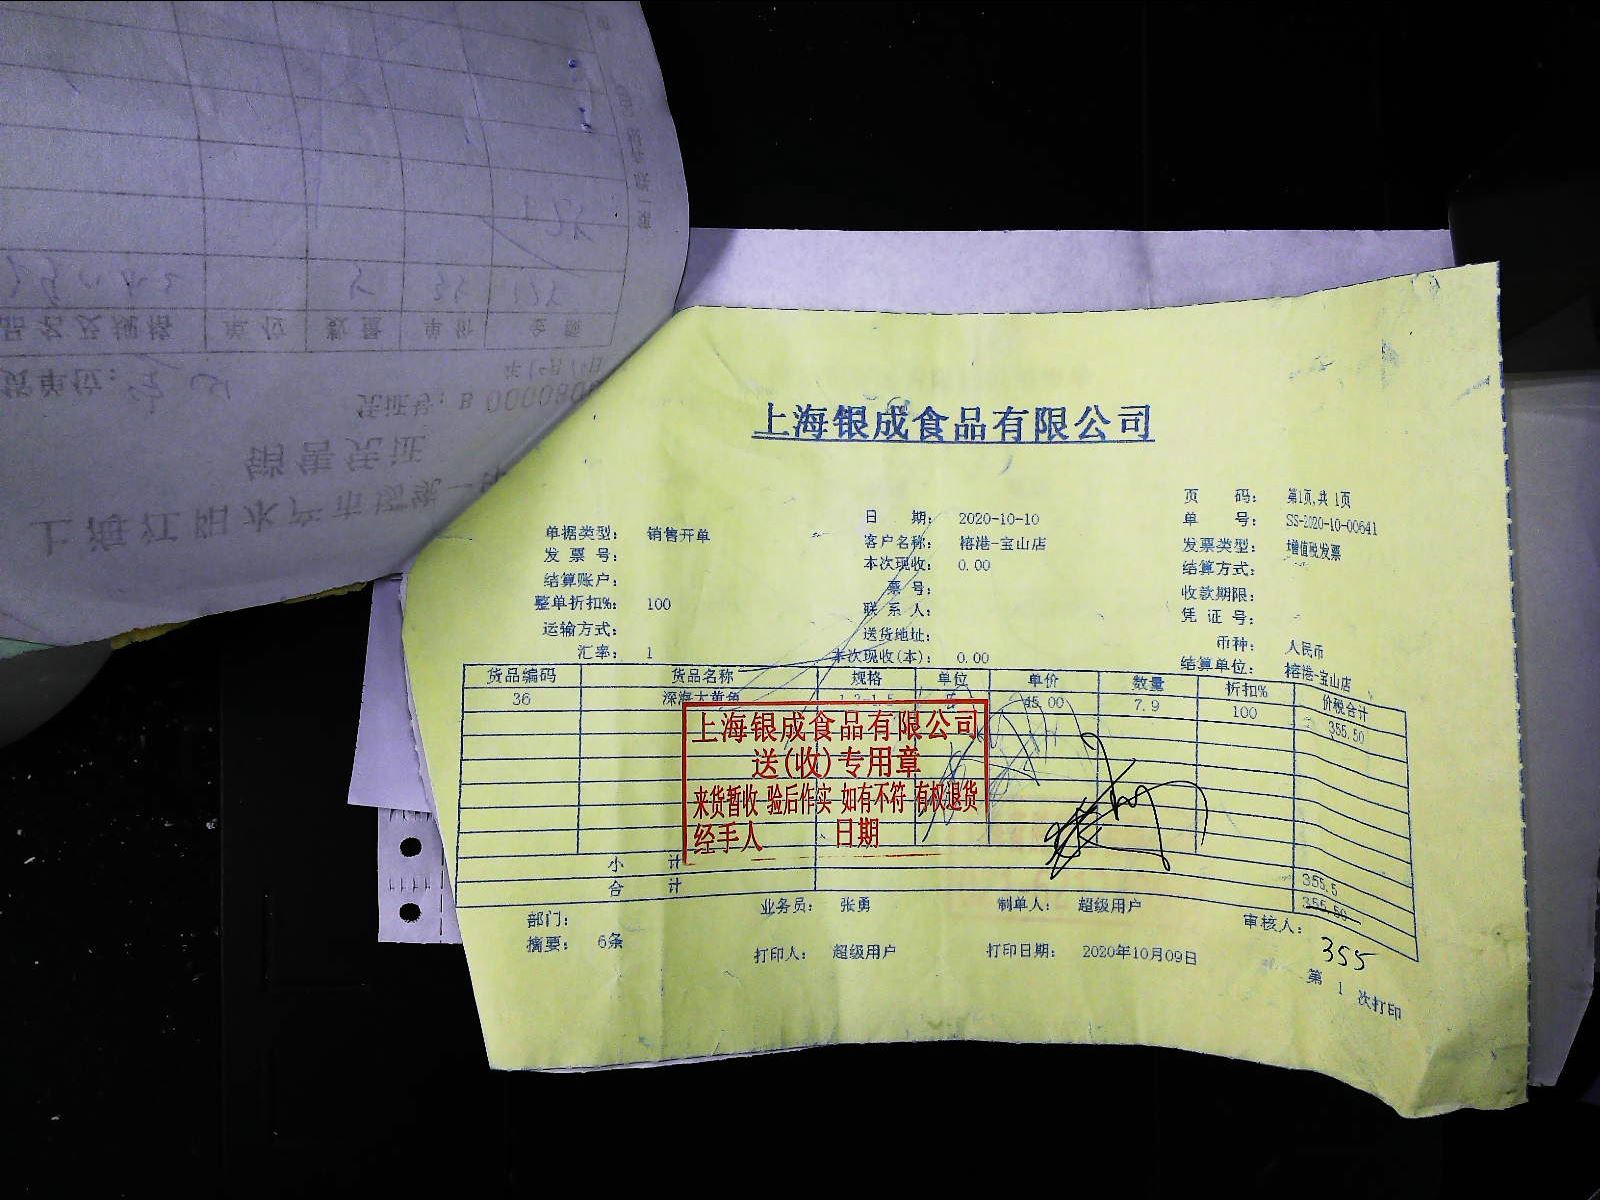 上海江阳水产市场统一
销售凭证
凭证号：B 000080
货单位：
品名及规格 单位 数量 单价 金额
5 35 175
175
上海银成食品有限公司
页 码： 第1页,共 1页
日 期： 2020-10-10 单 号： SS-2020-10-00641
单据类型： 销售开单 客户名称： 榕港-宝山店 发票类型： 增值税发票
发 票 号： 本次现收： 0.00 结算方式：
结算账户： 票 号： 收款期限：
整单折扣%： 100 联 系 人： 凭 证 号：
运输方式： 送货地址： 币种： 人民币
汇率： 1 本次现收(本)： 0.00 结算单位： 榕港-宝山店
货品编码 货品名称 规格 单位 单价 数量 折扣% 价税合计
36 深海大黄鱼 1.2-1.5 45.00 7.9 100 355.50
上海银成食品有限公司
送(收)专用章
来货暂收 验后作实 如有不符 有权退货
经手人 日期
小 计 355.5
合 计 355.50
部门： 业务员： 张勇 制单人： 超级用户 审核人：
355
摘要： 6条 打印人： 超级用户 打印日期： 2020年10月09日 第 1 次打印